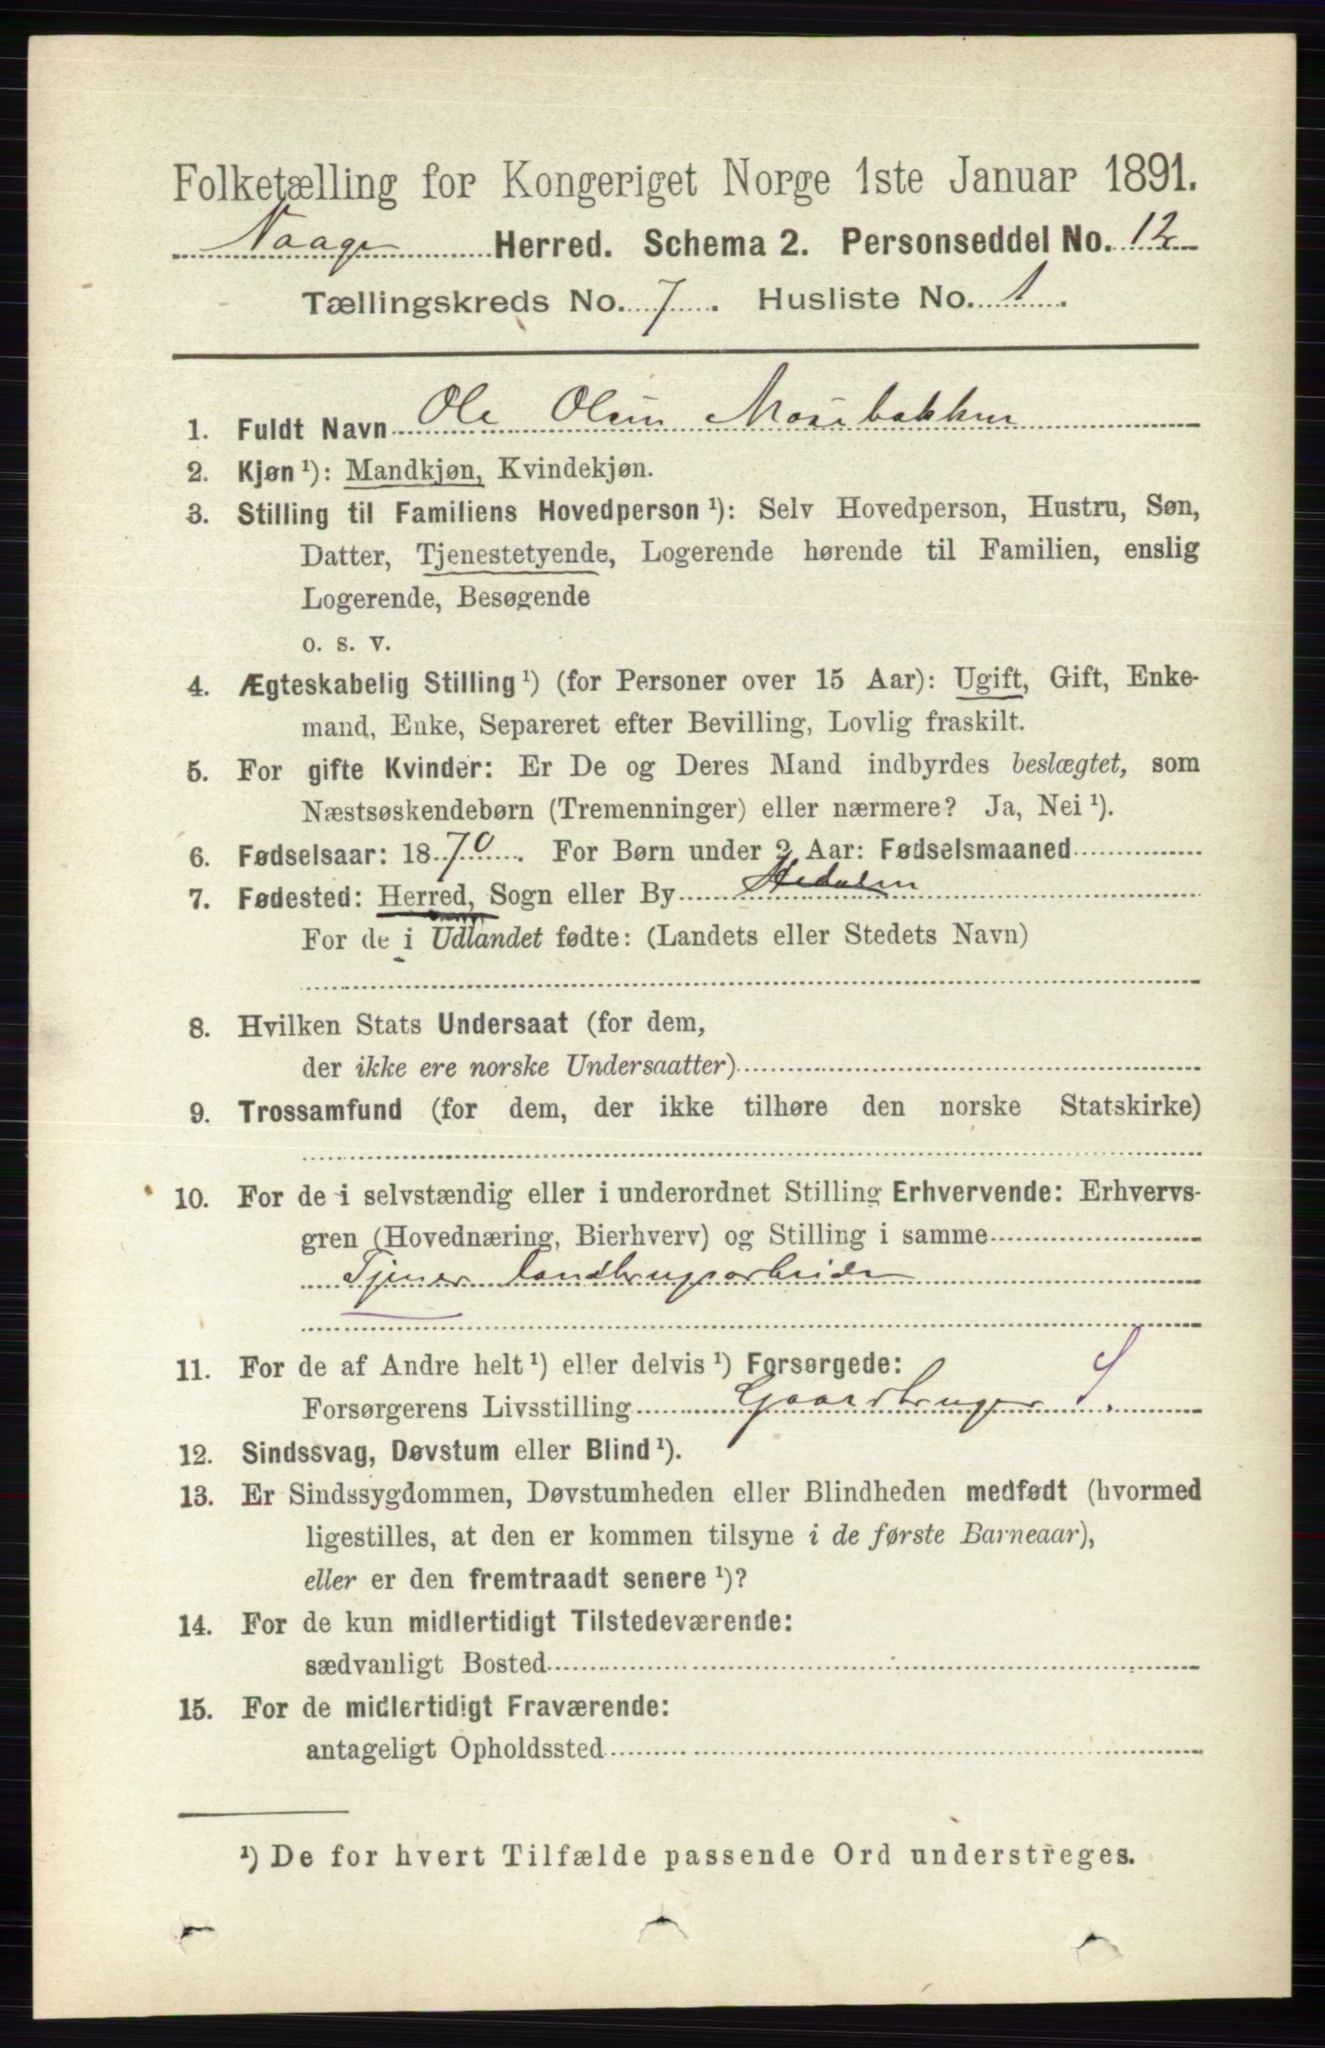 Folketælling for Kongeriget Norge 1ste Januar 1891.
Vaage Herred. Schema 2. Personseddel No. 12
Tællingskreds No. 7. Husliste No. 1.
1. Fuldt Navn Ole Olsen
2. Kjøn ¹): Mandkjøn, Kvindekjøn.
3. Stilling til Familiens Hovedperson ¹): Selv Hovedperson, Hustru, Søn,
Datter, Tjenestetyende, Logerende hørende til Familien, enslig
Logerende, Besøgende
o. s. v.
4. Ægteskabelig Stilling ¹) (for Personer over 15 Aar): Ugift, Gift, Enke-
mand, Enke, Separeret efter Bevilling, Lovlig fraskilt.
5. For gifte Kvinder: Er De og Deres Mand indbyrdes beslægtet, som
Næstsøskendebørn (Tremenninger) eller nærmere? Ja, Nei ¹).
6. Fødselsaar: 1870. For Børn under 2 Aar: Fødselsmaaned
7. Fødested: Herred, Sogn eller By Hedalen
For de i Udlandet fødte: (Landets eller Stedets Navn)
8. Hvilken Stats Undersaat (for dem,
der ikke ere norske Undersaatter)
9. Trossamfund (for dem, der ikke tilhøre den norske Statskirke)
10. For de i selvstændig eller i underordnet Stilling Erhvervende: Erhvervs-
gren (Hovednæring, Bierhverv) og Stilling i samme
Tjener landbrugsarbeide
11. For de af Andre helt ¹) eller delvis ¹) Forsørgede:
Forsørgerens Livsstilling Gaardbruger S.
12. Sindssvag, Døvstum eller Blind ¹).
13. Er Sindssygdommen, Døvstumheden eller Blindheden medfødt (hvormed
ligestilles, at den er kommen tilsyne i de første Barneaar),
eller er den fremtraadt senere ¹)?
14. For de kun midlertidigt Tilstedeværende:
sædvanligt Bosted
15. For de midlertidigt Fraværende:
antageligt Opholdssted
¹) De for hvert Tilfælde passende Ord understreges.